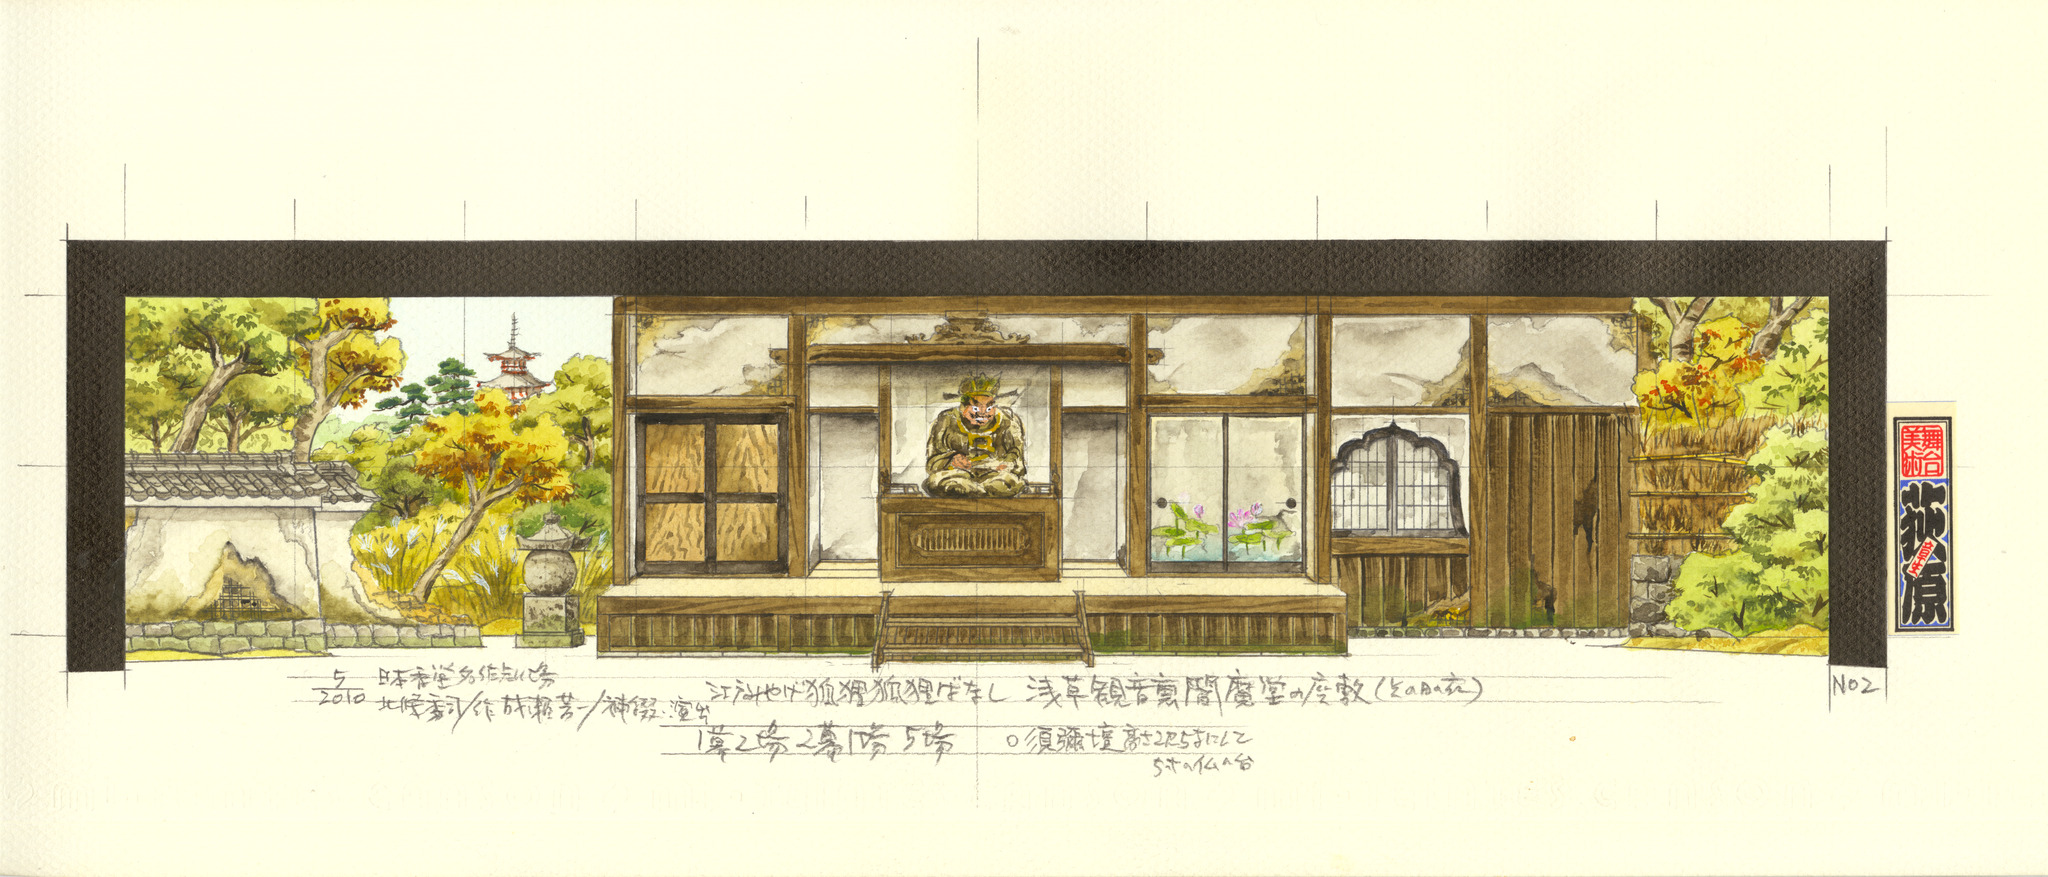 5 日本香堂名作劇場
2010 北條秀司/作 成瀬芳一/神綴・演出
江戸みやげ狐狸狐狸ばなし 浅草観音裏閻魔堂の座敷(その日の夜)
1幕2場 2幕1場 5場
○須彌壇高さ2尺5寸にして
5寸の仏の台
No2
舞台美術
荻原